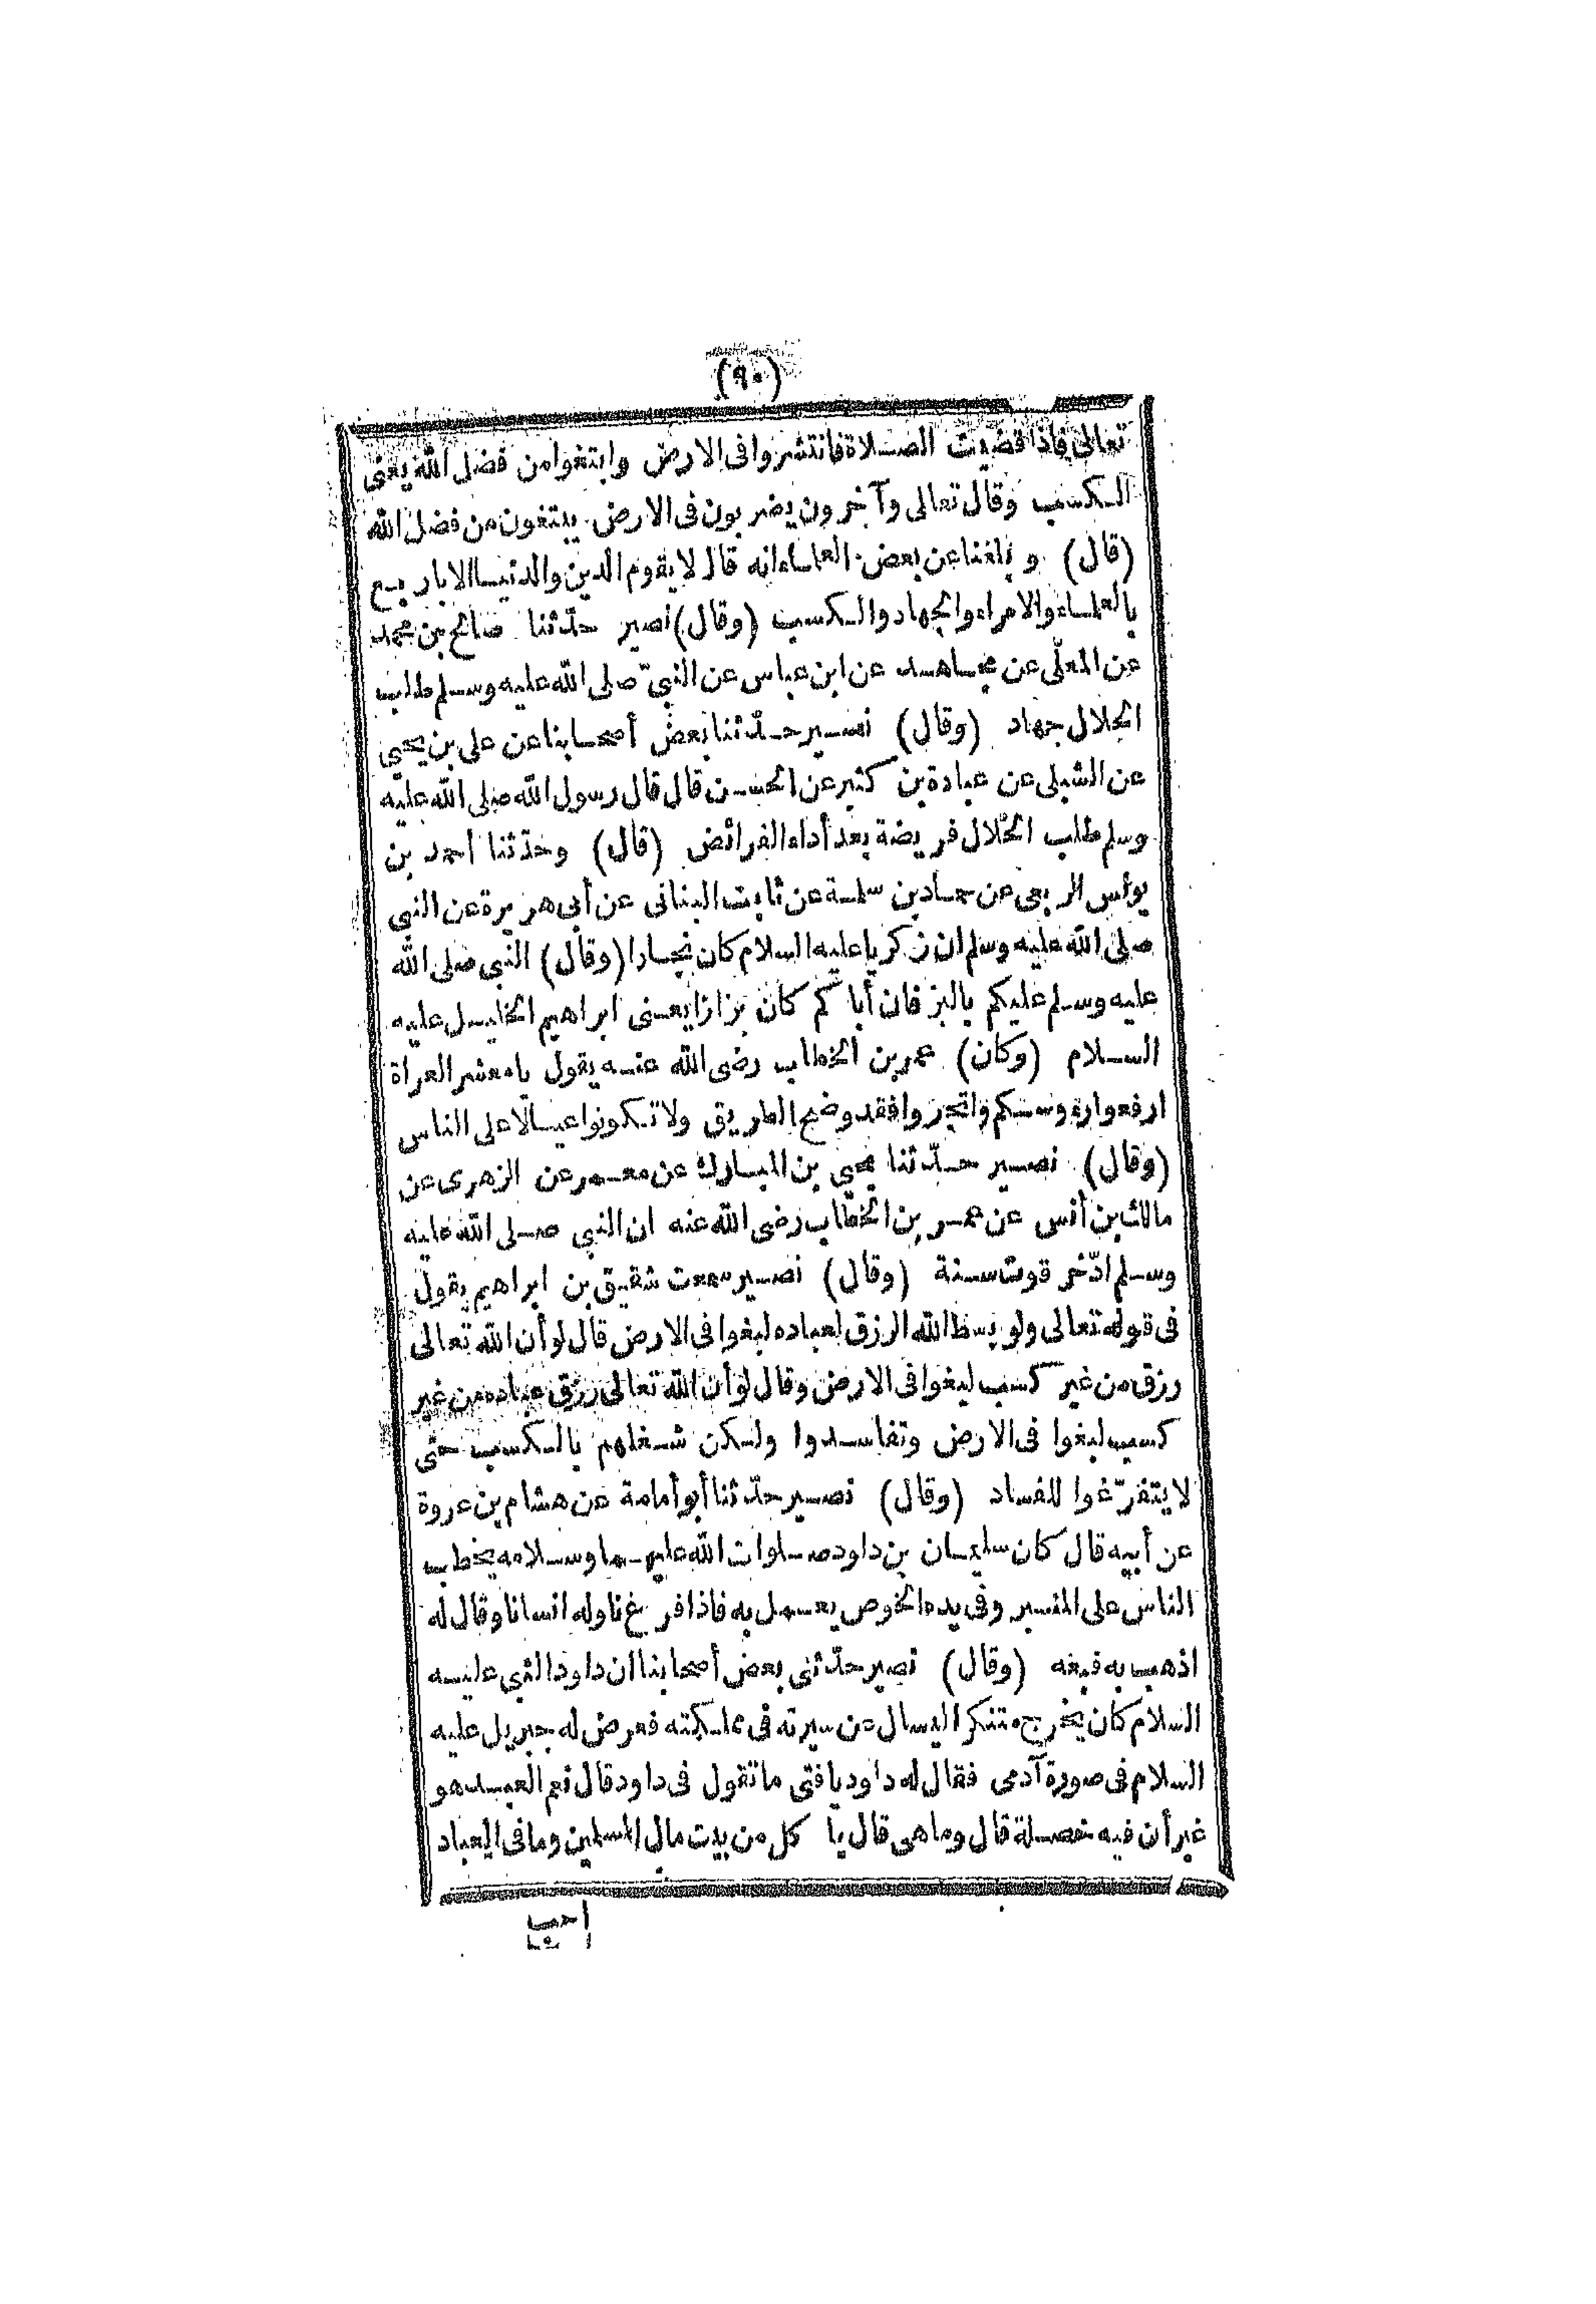 (٩٠)
تعالى فاذا قضيت الصلاة فانتشروا فى الارض وابتغوا من فضل الله يعنى
الكسب وقال تعالى وآخرون يضربون فى الارض يبتغون من فضل الله
(قال) وبلغنا عن بعض العلماء انه قال لا يقوم الدين والدنيا الا باربع
بالعلماء والامراء والجهاد والكسب (وقال) نصير حدّثنا صالح بن محمد
عن المعلّى عن مجاهد عن ابن عباس عن النبىّ صلى الله عليه وسلم طلب
الحلال جهاد (وقال) نصير حدّثنا بعض أصحابنا عن على بن يحيى
عن الشبلى عن عبادة بن كثير عن الحسن قال قال رسول الله صلى الله عليه
وسلم طلب الحلال فريضة بعد أداء الفرائض (قال) وحدّثنا أحمد بن
يونس الربعى عن حماد بن سلمة عن ثابت البنانى عن أبى هريرة عن النبى
صلى الله عليه وسلم ان زكريا عليه السلام كان نجارا (وقال) النبى صلى الله
عليه وسلم عليكم بالبز فان أباكم كان بزازا يعنى ابراهيم الخليل عليه
السلام (وكان) عمر بن الخطاب رضى الله عنه يقول يا معشر القراة
ارفعوا رؤوسكم واتجروا فقد وضح الطريق ولا تكونوا عيالا على الناس
(وقال) نصير حدّثنا يحيى بن المبارك عن معمر عن الزهرى عن
مالك بن أنس عن عمر بن الخطاب رضى الله عنه ان النبى صلى الله عليه
وسلم ادّخر قوت سنة (وقال) نصير سمعت شقيق بن ابراهيم يقول
فى قوله تعالى ولو بسط الله الرزق لعباده لبغوا فى الارض قال لو أن الله تعالى
رزق من غير كسب لبغوا فى الارض وقال لو أن الله تعالى رزق عباده من غير
كسب لبغوا فى الارض وتفاسدوا ولكن شغلهم بالكسب حتى
لا يتفرّغوا للفساد (وقال) نصير حدّثنا أبو أمامة عن هشام بن عروة
عن أبيه قال كان سليمان بن داود صلوات الله عليهما وسلامه يخطب
الناس على المنبر وفى يده الخوص يعمل به فاذا فرغ ناوله انسانا وقال له
اذهب به فبعه (وقال) نصير حدّثنى بعض أصحابنا ان داود النبى عليه
السلام كان يخرج متنكرا ليسال عن سيرته فى مملكته فعرض له جبريل عليه
السلام فى صورة آدمى فقال له داود يا فتى ما تقول فى داود قال نعم العبد هو
غير أن فيه خصلة قال وما هى قال يأكل من بيت مال المسلمين وما فى العباد
أحب